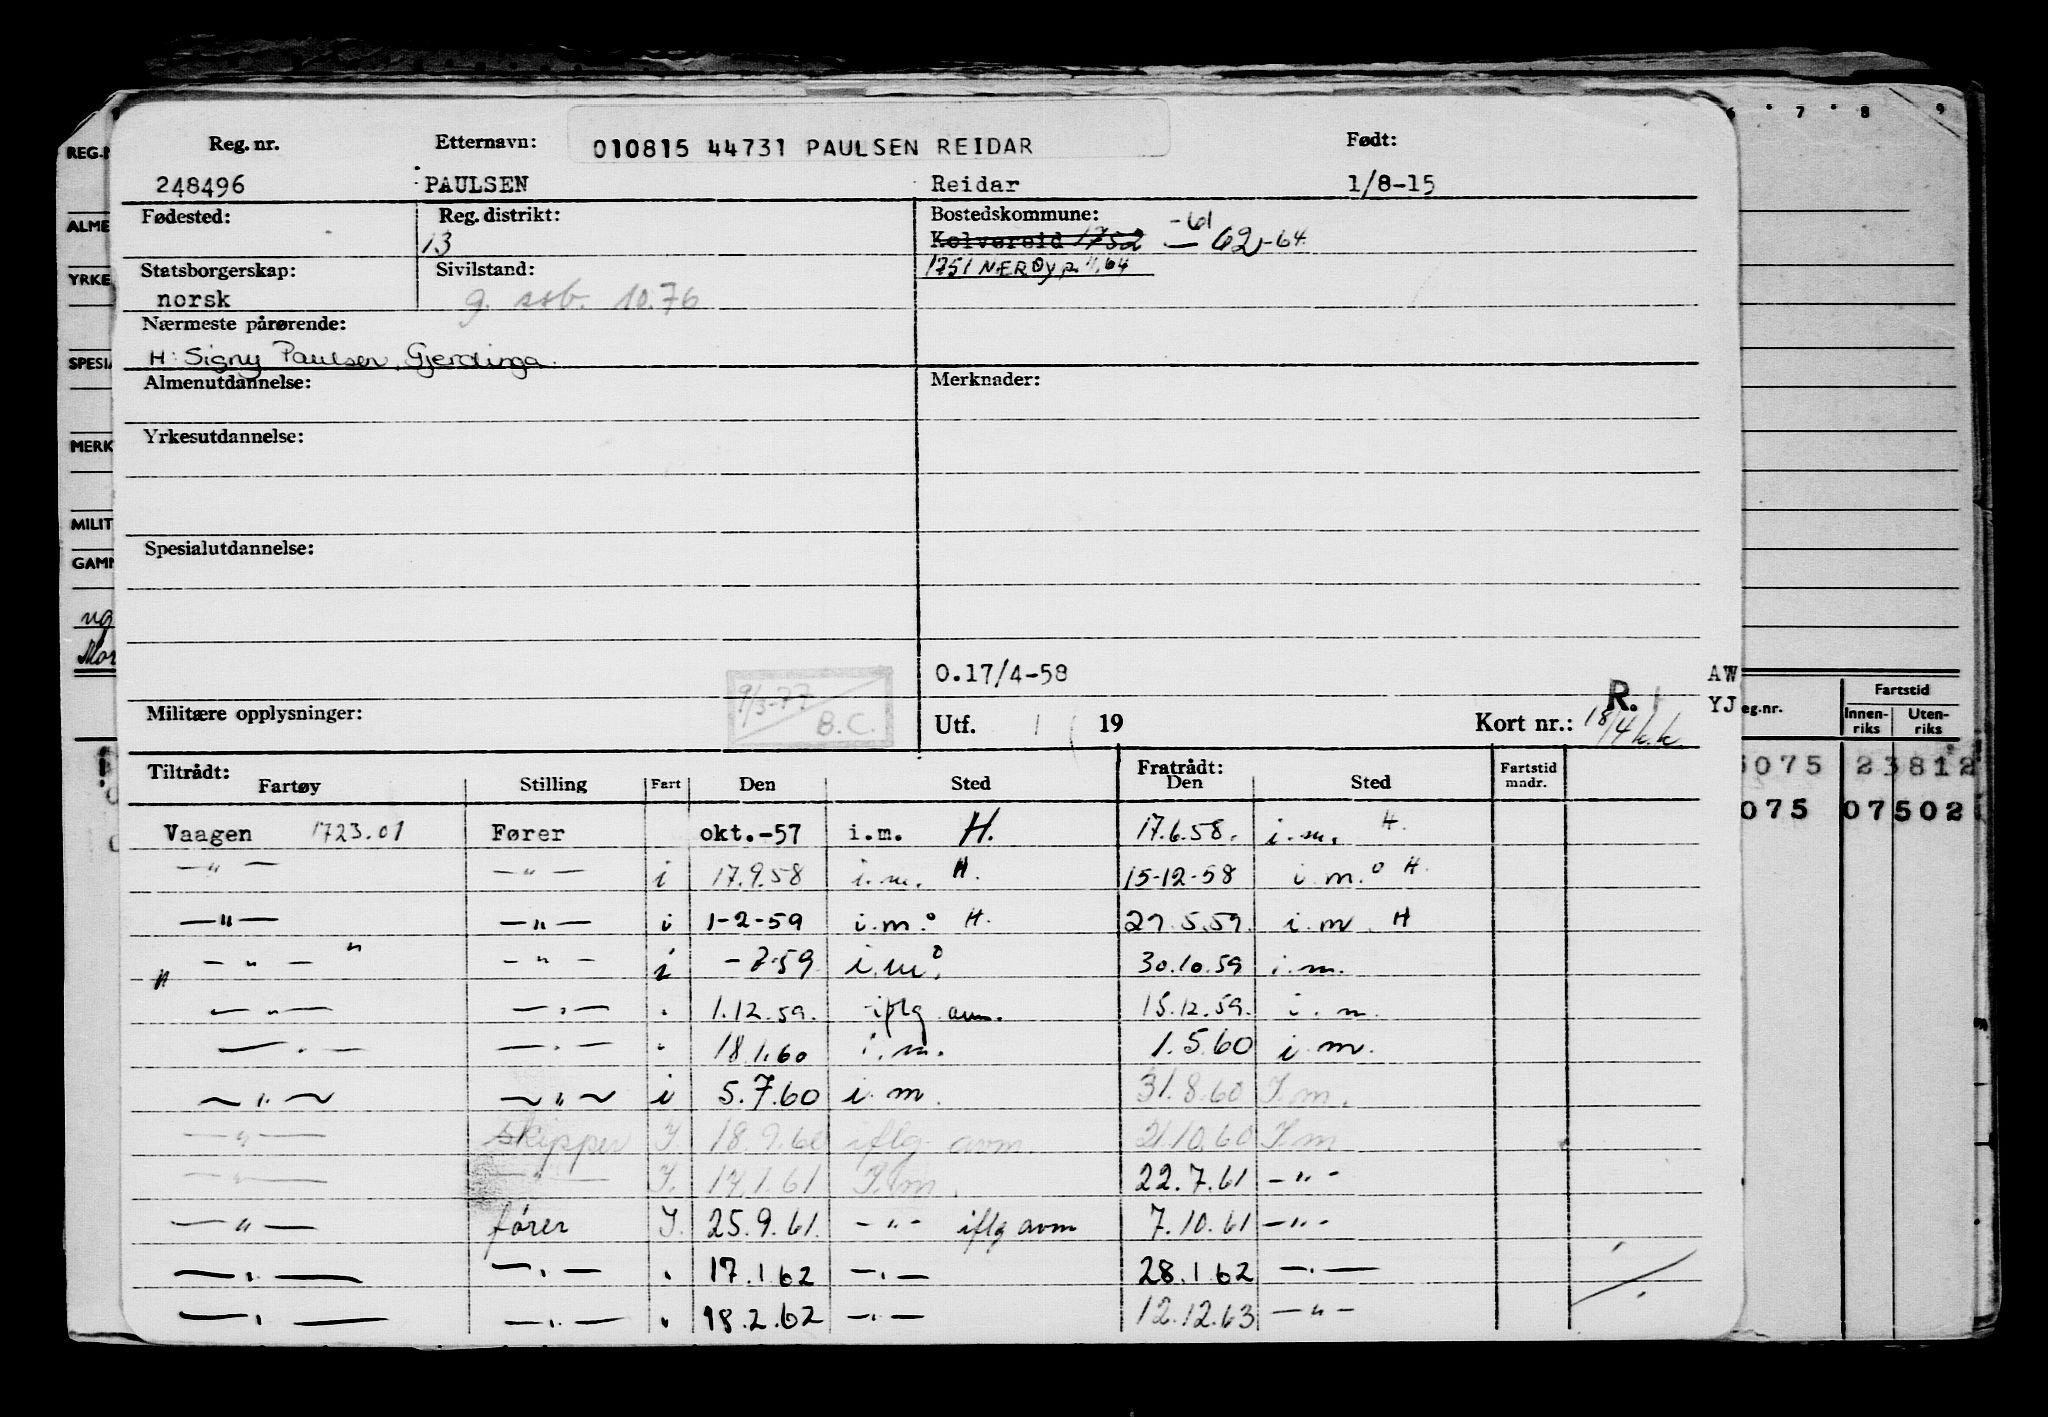 Reg. nr. Etternavn: 010815 44731 PAULSEN REIDAR Født:
248496 PAULSEN Reidar 1/8-15
Fødested: Reg. distrikt: Bostedskommune:
13 Kolvereid 1752 -61 — 62-64
Statsborgerskap: Sivilstand: 1751 NÆRØY p. 11.64
norsk g. ssb. 10.76
Nærmeste pårørende:
H: Signy Paulsen, Gjerdinga.
Almenutdannelse: Merknader:
Yrkesutdannelse:
Spesialutdannelse:
O.17/4-58 AW
9/3-77 B.C.
Militære opplysninger: Utf. 19 Kort nr.: R. 1 18/4 k.k. YJ
Tiltrådt: Fratrådt:
Fartøy Stilling Fart Den Sted Den Sted Fartstid mndr.
Vaagen 1723.01 Fører okt.-57 i.m. H. 17.6.58. i.m. H.
—"— —"— i 17.9.58 i.m. H. 15-12-58 i.m.° H
—"— —"— i 1-2-59 i.m.° H. 27.5.59. i.m. H
—"— " —"— i -7-59 i.m.° 30.10.59 i.m.
—"— —"— " 1.12.59. iflg avm. 15.12.59. i.m.
—"— —"— " 18.1.60 i.m. 1.5.60 i.m.
—"— —"— i 5.7.60 i.m. 31.8.60 I.m.
—"— skipper I. 18.9.60 iflg avm. 21.10.60 I.m
—"— —"— I. 14.1.61 I.m. 22.7.61 —"—
—"— fører I. 25.9.61. —"— iflg avm 7.10.61 —"—
—"— —"— " 17.1.62 —"— 28.1.62 —"—
—"— —"— " 18.2.62 —"— 12.12.63 —"—
REG.N
ALME
YRKE
SPESIA
MERK
MILIT
GAMM
ug
Mor
6 7 8 9
eg.nr. Fartstid
Innen-riks Uten-riks
075 23812
075 07502